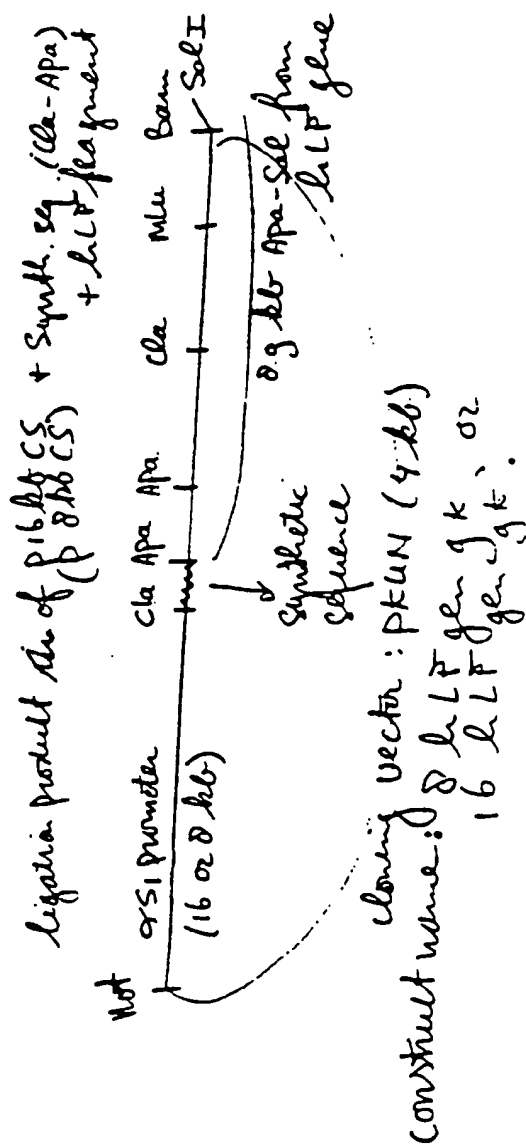 ligation product of p16kb CS + Synth. seq. (Cla-Apa)
(p 8kb CS) + hLF fragment
Not Cla Apa Apa Cla Mlu Bam
Sal I
αS1 promoter
(16 or 8 kb)
Synthetic
sequence
8.9 kb Apa-Sal from
hLF gene
cloning vector : pKUN (4 kb)
construct name: 8 hLF gen 9k, or
16 hLF gen 9k.